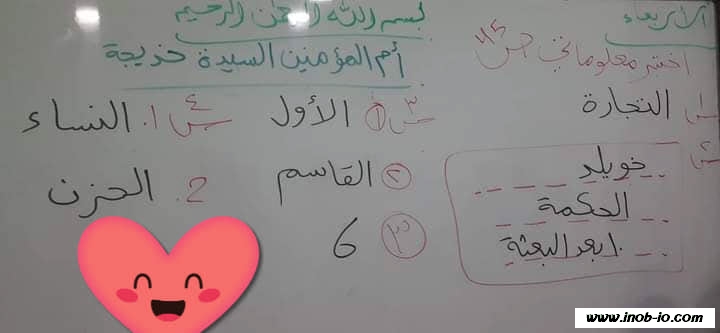 الأربعاء
بسم الله الرحمن الرحيم
أم المؤمنين السيدة خديجة
اختبر معلوماتي ص
س١ التجارة
س٢
خويلد
الحكمة
١٠ بعد البعثة
س٣ ① الأول
② القاسم
③ 6
س٤ 1. النساء
2. الحزن
www.inob-io.com